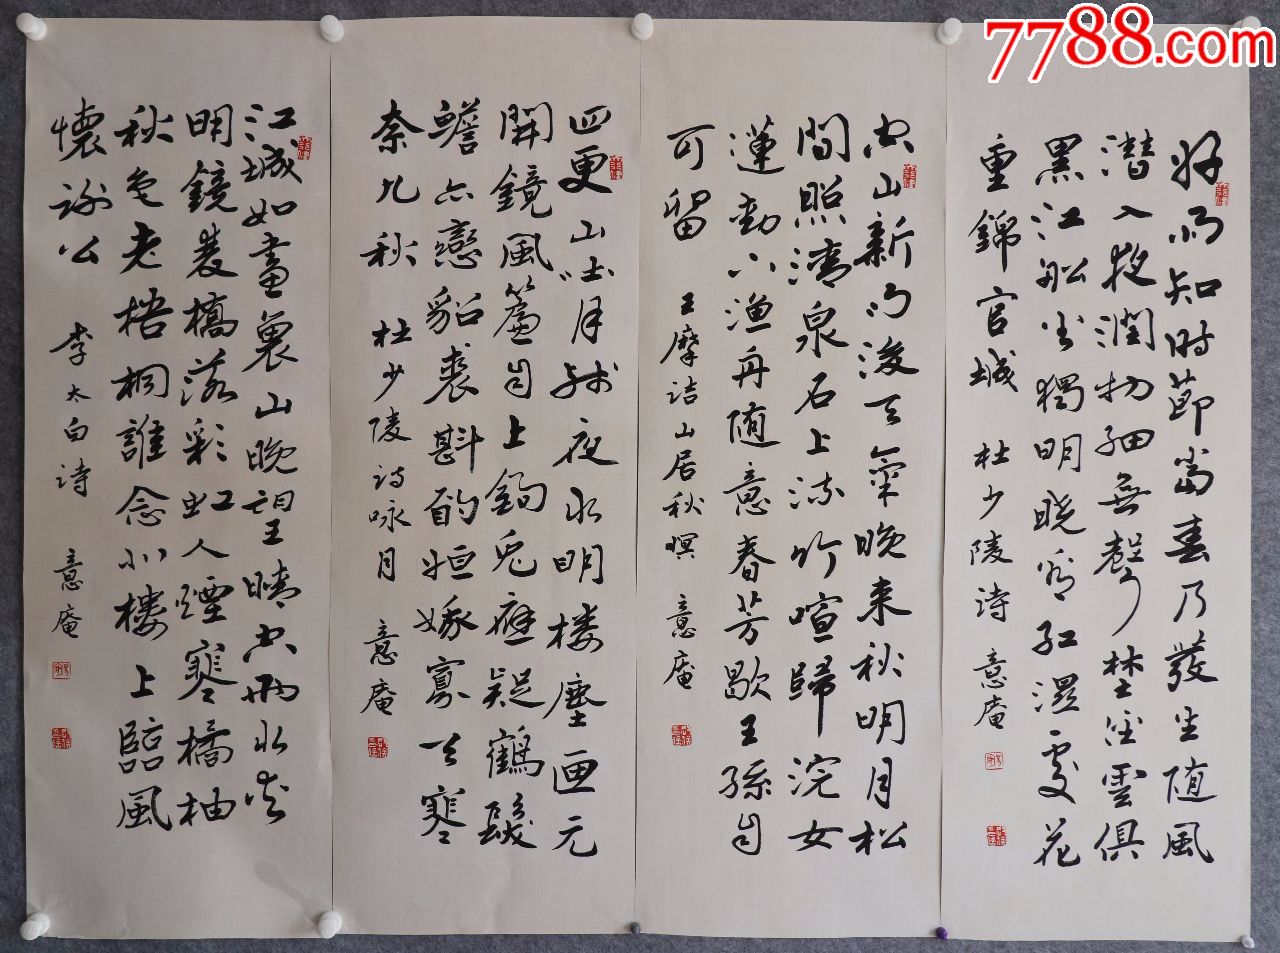 7788.com
好雨知时節當春乃發生随風
潜入夜潤物细無聲埜径雲俱
黑江船火獨明晓看红濕處花
重錦官城 杜少陵诗 意庵
空山新雨後天氣晚来秋明月松
間照清泉石上流竹喧歸浣女
蓮動下渔舟随意春芳歇王孫自
可留 王摩诘山居秋暝 意庵
四更山吐月残夜水明楼塵匣元
開鏡風簾自上鉤兔應疑鶴髮
蟾亦戀貂裘斟酌姮娥寡天寒
奈九秋 杜少陵诗咏月 意庵
江城如畫裏山晚望晴空兩水夾
明鏡雙橋落彩虹人煙寒橘柚
秋色老梧桐誰念北楼上臨風
懷谢公 李太白诗 意庵